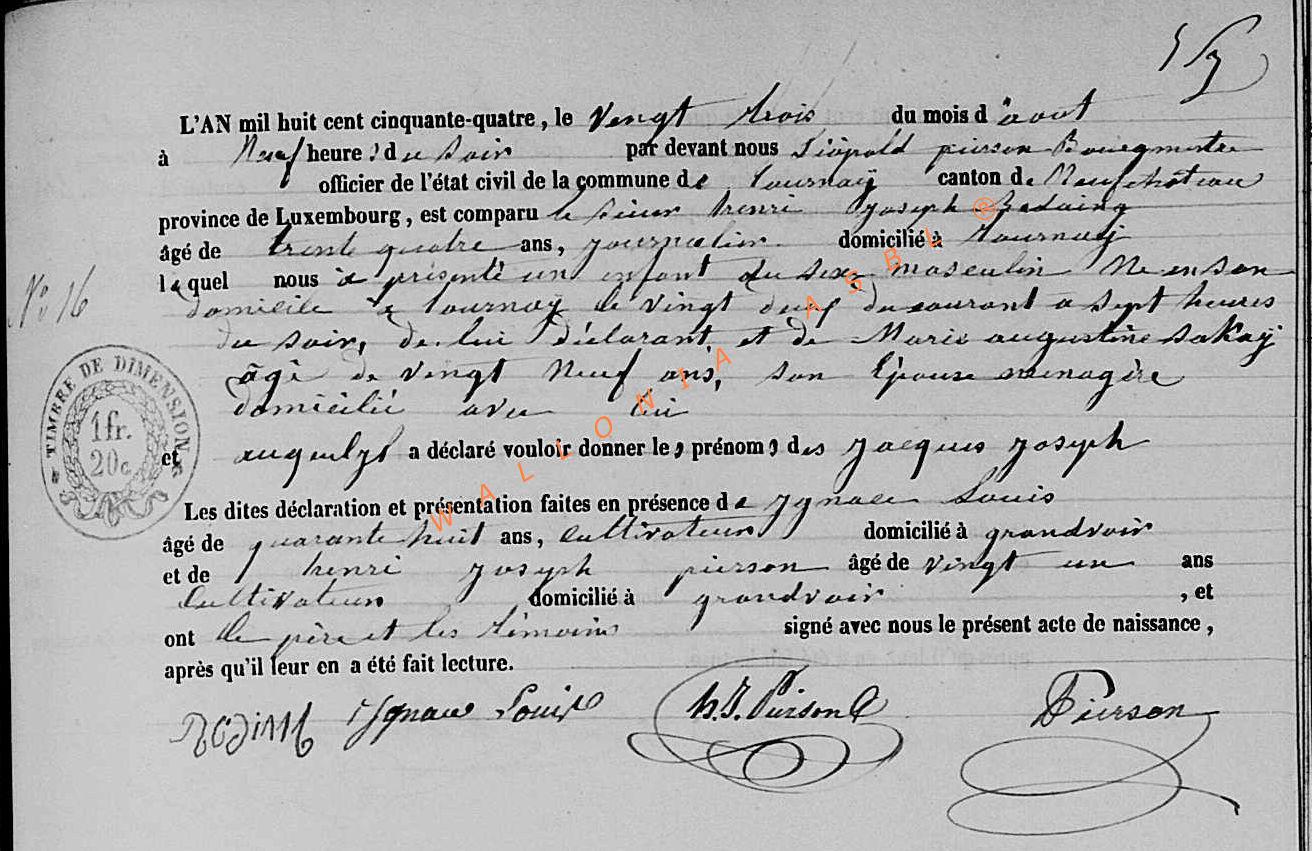 L'AN mil huit cent cinquante-quatre, le vingt trois du mois d'août
à Neuf heures du soir par devant nous Léopold pierson Bourgmestre
officier de l'état civil de la commune de Tournay canton de Neufchateau
province de Luxembourg, est comparu le sieur henri joseph
âgé de trente quatre ans, journalier domicilié à Tournay
lequel nous à présenté un enfant du sexe masculin Né en son
N° 16
domicile à tournay le vingt deux du courant a sept heures
du soir, de lui déclarant et de Marie augustine
âgé de vingt Neuf ans, son Epouse menagère
domicilié avec lui
TIMBRE DE DIMENSION
1 fr.
20 c.
et auquel il a déclaré vouloir donner les prénoms des jacques joseph
Les dites déclaration et présentation faites en présence de ignace Louis
âgé de quarante huit ans, Cultivateur domicilié à grandvoir
et de henri joseph pierson âgé de vingt un ans
Cultivateur domicilié à grandvoir , et
ont le père et les témoins signé avec nous le présent acte de naissance,
après qu'il leur en a été fait lecture.
Ignace Louis H. J. Pierson Pierson
WALLONIA ASBL ®